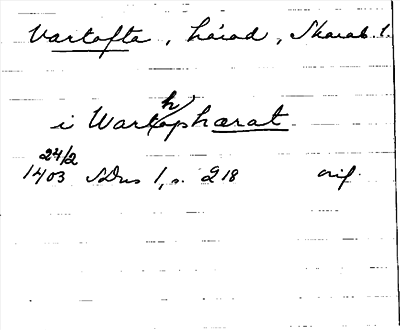 Vartofta, härad, Skarab. l.
i Warthophærat
24/2
1403 SDns 1, s. 218 orig.